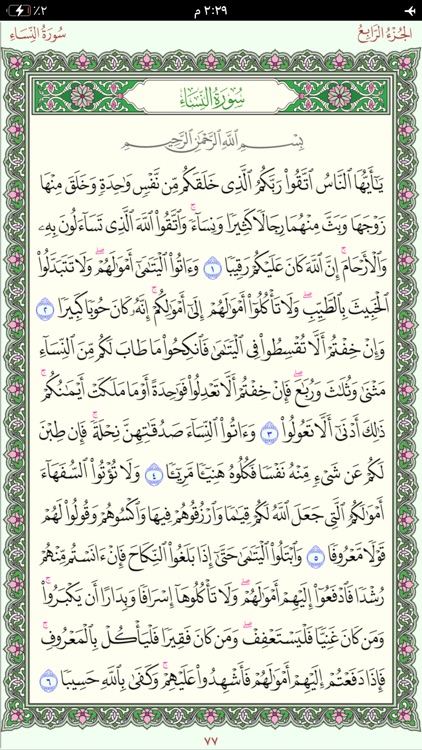 ٢:٢٩ م ٪٢
الجُزْءُ الرَّابِعُ سُورَةُ النِّسَاءِ
سُورَةُ النِّسَاءِ
بِسْمِ ٱللَّهِ ٱلرَّحْمَٰنِ ٱلرَّحِيمِ
يَٰٓأَيُّهَا ٱلنَّاسُ ٱتَّقُوا۟ رَبَّكُمُ ٱلَّذِى خَلَقَكُم مِّن نَّفْسٍ وَٰحِدَةٍ وَخَلَقَ مِنْهَا
زَوْجَهَا وَبَثَّ مِنْهُمَا رِجَالًا كَثِيرًا وَنِسَآءً ۚ وَٱتَّقُوا۟ ٱللَّهَ ٱلَّذِى تَسَآءَلُونَ بِهِۦ
وَٱلْأَرْحَامَ ۚ إِنَّ ٱللَّهَ كَانَ عَلَيْكُمْ رَقِيبًا ١ وَءَاتُوا۟ ٱلْيَتَٰمَىٰٓ أَمْوَٰلَهُمْ ۖ وَلَا تَتَبَدَّلُوا۟
ٱلْخَبِيثَ بِٱلطَّيِّبِ ۖ وَلَا تَأْكُلُوٓا۟ أَمْوَٰلَهُمْ إِلَىٰٓ أَمْوَٰلِكُمْ ۚ إِنَّهُۥ كَانَ حُوبًا كَبِيرًا ٢
وَإِنْ خِفْتُمْ أَلَّا تُقْسِطُوا۟ فِى ٱلْيَتَٰمَىٰ فَٱنكِحُوا۟ مَا طَابَ لَكُم مِّنَ ٱلنِّسَآءِ
مَثْنَىٰ وَثُلَٰثَ وَرُبَٰعَ ۖ فَإِنْ خِفْتُمْ أَلَّا تَعْدِلُوا۟ فَوَٰحِدَةً أَوْ مَا مَلَكَتْ أَيْمَٰنُكُمْ ۚ
ذَٰلِكَ أَدْنَىٰٓ أَلَّا تَعُولُوا۟ ٣ وَءَاتُوا۟ ٱلنِّسَآءَ صَدُقَٰتِهِنَّ نِحْلَةً ۚ فَإِن طِبْنَ
لَكُمْ عَن شَىْءٍ مِّنْهُ نَفْسًا فَكُلُوهُ هَنِيٓـًٔا مَّرِيٓـًٔا ٤ وَلَا تُؤْتُوا۟ ٱلسُّفَهَآءَ
أَمْوَٰلَكُمُ ٱلَّتِى جَعَلَ ٱللَّهُ لَكُمْ قِيَٰمًا وَٱرْزُقُوهُمْ فِيهَا وَٱكْسُوهُمْ وَقُولُوا۟ لَهُمْ
قَوْلًا مَّعْرُوفًا ٥ وَٱبْتَلُوا۟ ٱلْيَتَٰمَىٰ حَتَّىٰٓ إِذَا بَلَغُوا۟ ٱلنِّكَاحَ فَإِنْ ءَانَسْتُم مِّنْهُمْ
رُشْدًا فَٱدْفَعُوٓا۟ إِلَيْهِمْ أَمْوَٰلَهُمْ ۖ وَلَا تَأْكُلُوهَآ إِسْرَافًا وَبِدَارًا أَن يَكْبَرُوا۟ ۚ
وَمَن كَانَ غَنِيًّا فَلْيَسْتَعْفِفْ ۖ وَمَن كَانَ فَقِيرًا فَلْيَأْكُلْ بِٱلْمَعْرُوفِ ۚ
فَإِذَا دَفَعْتُمْ إِلَيْهِمْ أَمْوَٰلَهُمْ فَأَشْهِدُوا۟ عَلَيْهِمْ ۚ وَكَفَىٰ بِٱللَّهِ حَسِيبًا ٦
٧٧